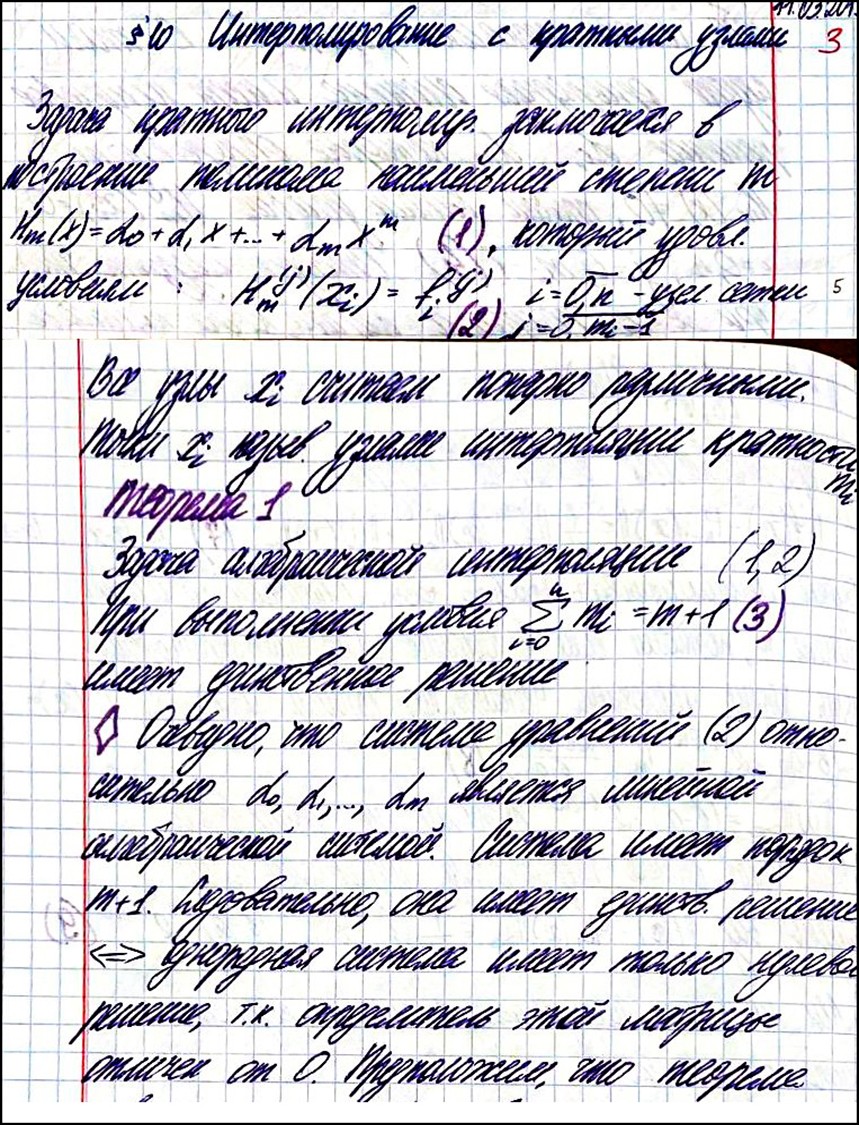 11.03.201
§10 Интерполирование с кратными узлами
3
Задача кратного интерполир. заключается в
построение полинома наименьшей степени m
Hm(x) = α₀ + α₁x + ... + αₘxᵐ (1), который удовл.
условиям: Hₘ⁽ʲ⁾(xᵢ) = fᵢ⁽ʲ⁾ i = 0,n - узел сетки 5
(2) j = 0, mᵢ-1
Все узлы xᵢ считаем попарно различными.
Точки xᵢ назыв. узлами интерполяции кратности
mᵢ
Теорема 1
Задача алгебраической интерполяции (1,2)
При выполнении условия ∑ᵢ₌₀ⁿ mᵢ = m+1 (3)
имеет единственное решение
◊ Очевидно, что система уравнений (2) отно-
сительно α₀, α₁, ..., αₘ является линейной
алгебраической системой. Система имеет порядок
m+1. Следовательно, она имеет единств. решение
<=> однородная система имеет только нулевое
решение, т.к. определитель этой матрицы
отличен от 0. Предположим, что теорема